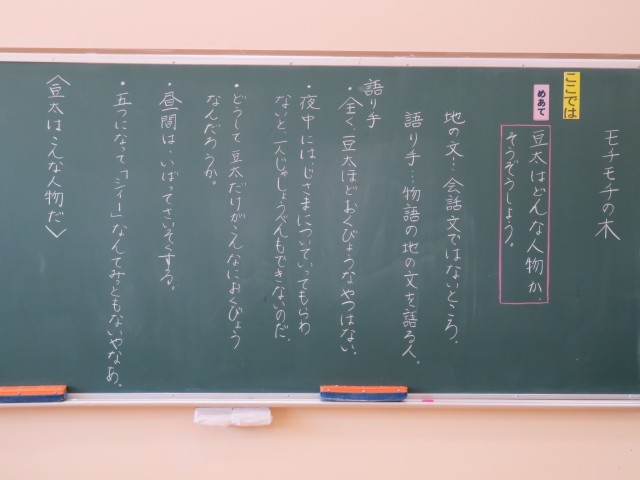 モチモチの木
ここでは
めあて
豆太はどんな人物か、
そうぞうしよう。
地の文…会話文ではないところ。
語り手…物語の地の文を語る人。
語り手
・全く、豆太ほどおくびょうなやつはない。
・夜中にはじさまについていってもらわ
ないと、一人じゃしょうべんもできないのだ。
・どうして豆太だけがこんなにおくびょう
なんだろうか。
・昼間は、いばってさいそくする。
・五つになって、「シイー」なんてみっともないやなあ。
〈豆太はこんな人物だ〉